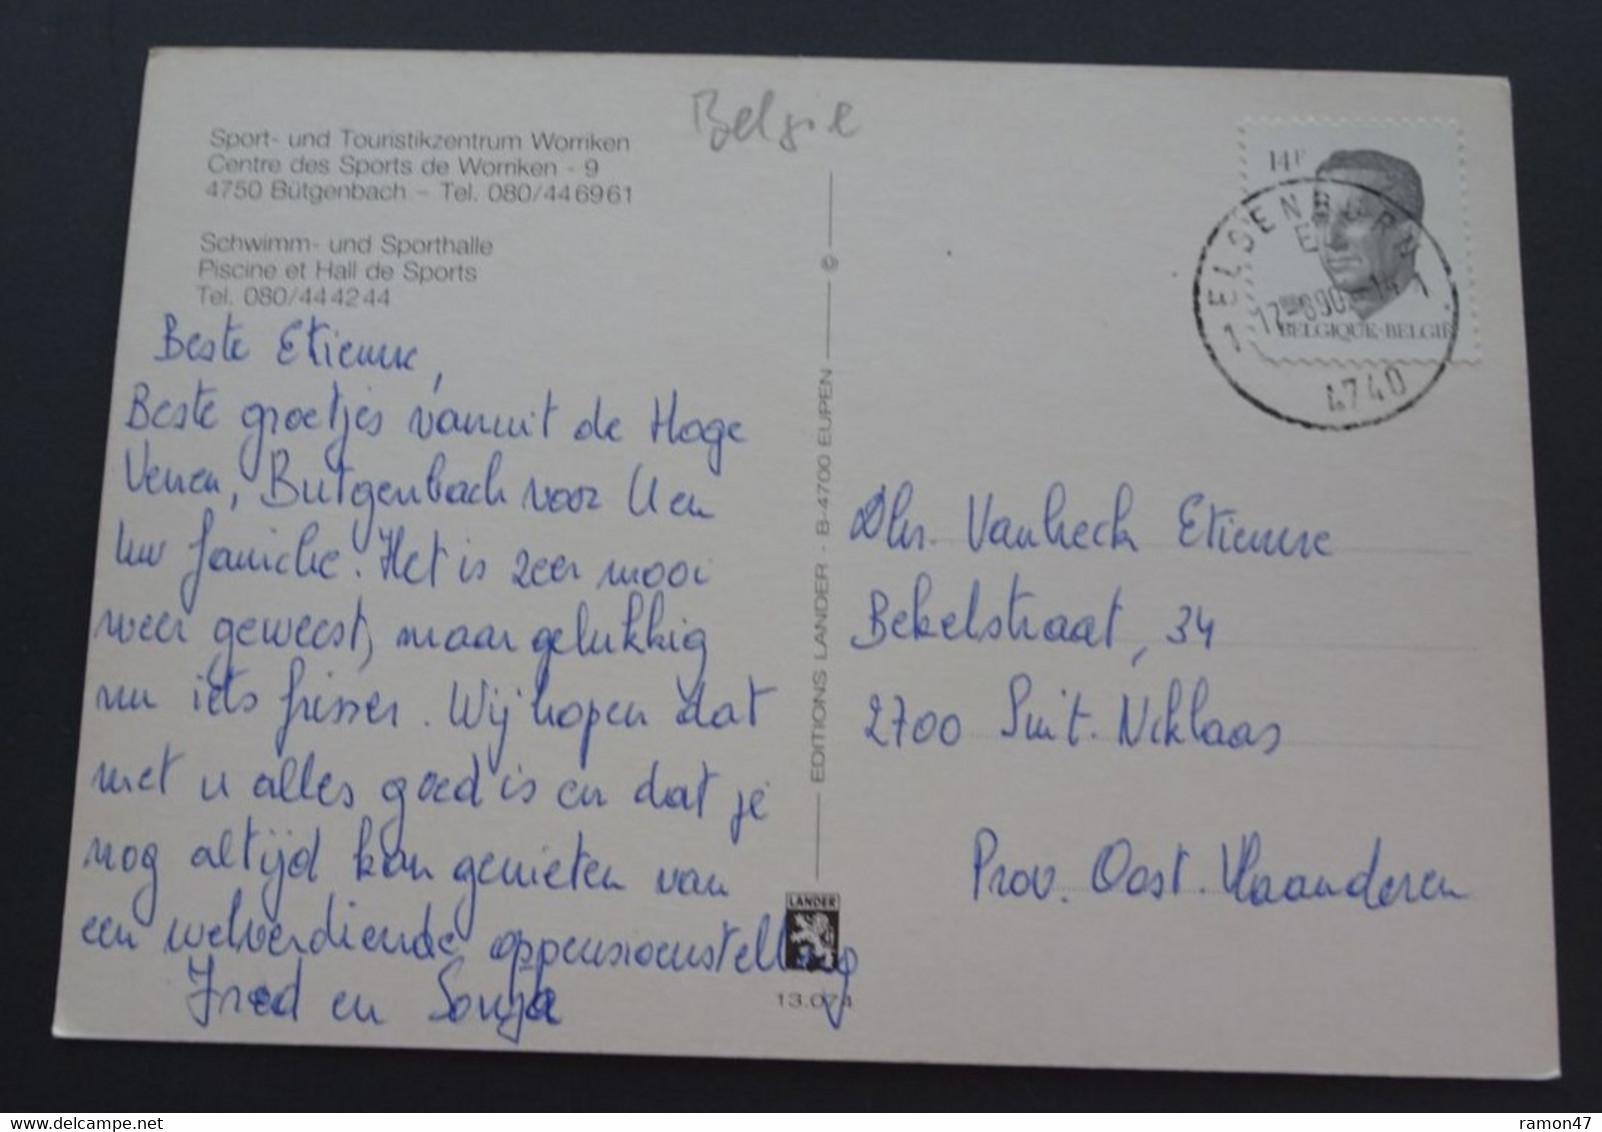 Belgie
Sport- und Touristikzentrum Worriken
Centre des Sports de Worriken - 9
4750 Bütgenbach - Tel. 080/446961
Schwimm- und Sporthalle
Piscine et Hall de Sports
Tel. 080/444244
Beste Etienne,
Beste groetjes vanuit de Hoge
Venen, Butgenbach voor U en
uw familie. Het is zeer mooi
weer geweest, maar gelukkig
nu iets frisser. Wij hopen dat
met u alles goed is en dat je
nog altijd kan genieten van
een welverdiende oppensioenstelling
Fred en Sonja
EDITIONS LANDER - B-4700 EUPEN
©
LANDER
13.074
14F
BELGIQUE-BELGIË
ELSENBORN
1 1
4740
Dhr. Vanheck Etienne
Bekelstraat, 34
2700 Sint. Niklaas
Prov. Oost. Vlaanderen
ramon47